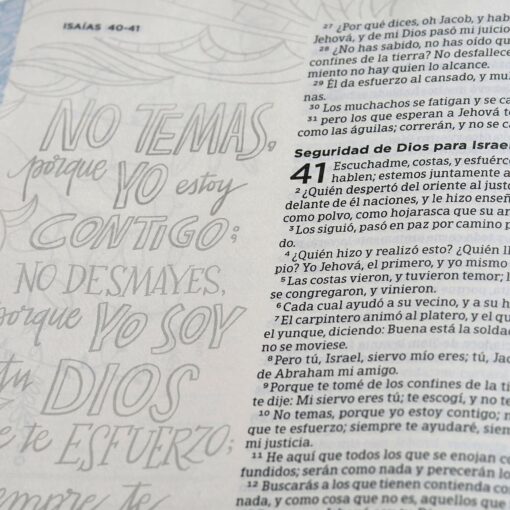 ISAÍAS 40-41
NO TEMAS,
porque YO estoy
CONTIGO;
NO DESMAYES,
porque YO SOY
tu DIOS
que te ESFUERZO;
siempre te
27 ¿Por qué dices, oh Jacob, y hab
Jehová, y de mi Dios pasó mi juicio
28 ¿No has sabido, no has oído qu
confines de la tierra? No desfallec
miento no hay quien lo alcance.
29 Él da esfuerzo al cansado, y mul
nas.
30 Los muchachos se fatigan y se ca
31 pero los que esperan a Jehová t
como las águilas; correrán, y no se ca
Seguridad de Dios para Israel
41 Escuchadme, costas, y esfuérc
hablen; estemos juntamente a
2 ¿Quién despertó del oriente al justo
delante de él naciones, y le hizo enseñ
como polvo, como hojarasca que su ar
3 Los siguió, pasó en paz por camino p
do.
4 ¿Quién hizo y realizó esto? ¿Quién ll
pio? Yo Jehová, el primero, y yo mismo
5 Las costas vieron, y tuvieron temor; l
se congregaron, y vinieron.
6 Cada cual ayudó a su vecino, y a su h
7 El carpintero animó al platero, y el qu
el yunque, diciendo: Buena está la soldad
no se moviese.
8 Pero tú, Israel, siervo mío eres; tú, Jac
de Abraham mi amigo.
9 Porque te tomé de los confines de la ti
te dije: Mi siervo eres tú; te escogí, y no te
10 No temas, porque yo estoy contigo; n
que te esfuerzo; siempre te ayudaré, siem
mi justicia.
11 He aquí que todos los que se enojan co
fundidos; serán como nada y perecerán lo
12 Buscarás a los que tienen contienda co
nada, y como cosa que no es, aquellos que